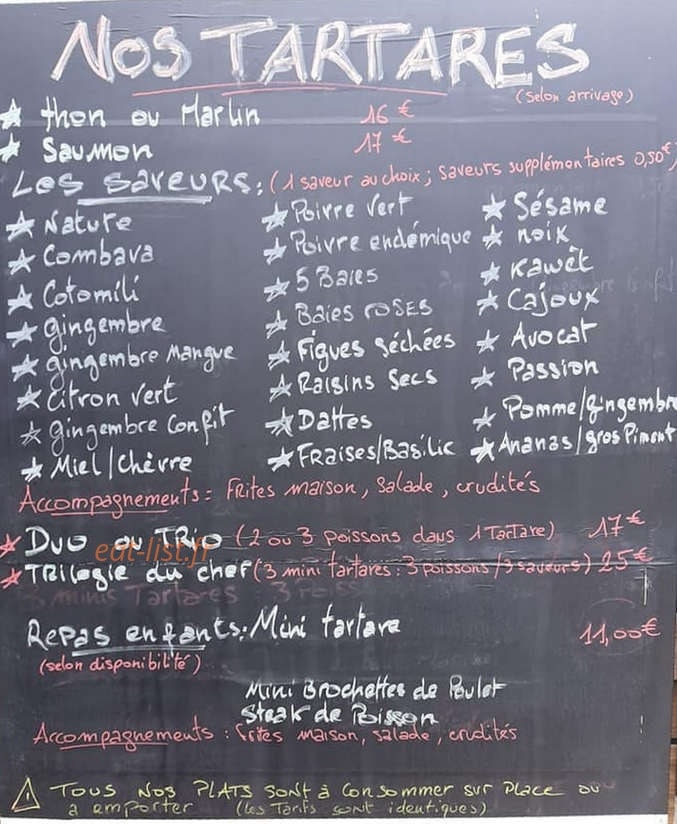 NOS TARTARES
(selon arrivage)
thon ou Marlin 16 €
Saumon 17 €
Les saveurs : (1 saveur au choix ; saveurs supplémentaires 0,50€)
Nature
Combava
Cotomili
gingembre
gingembre Mangue
Citron vert
gingembre Confit
Miel/Chèvre
Poivre vert
Poivre endémique
5 Baies
Baies roses
Figues séchées
Raisins secs
Dattes
Fraises/Basilic
Sésame
noix
Kawèt
Cajoux
Avocat
Passion
Pomme/gingembre
Ananas/gros Piment
Accompagnements : Frites maison, salade, crudités
Duo ou TRio (2 ou 3 poissons dans 1 Tartare) 17€
eat-list.fr
TRilogie du chef (3 mini tartares : 3 poissons/3 saveurs) 25€
3 minis Tartares : 3
Repas enfants : Mini tartare 11,00€
(selon disponibilité)
Mini Brochettes de Poulet
Steak de Poisson
Accompagnements : frites maison, salade, crudités
⚠ Tous nos plats sont à consommer sur place ou
a emporter (les Tarifs sont identiques)